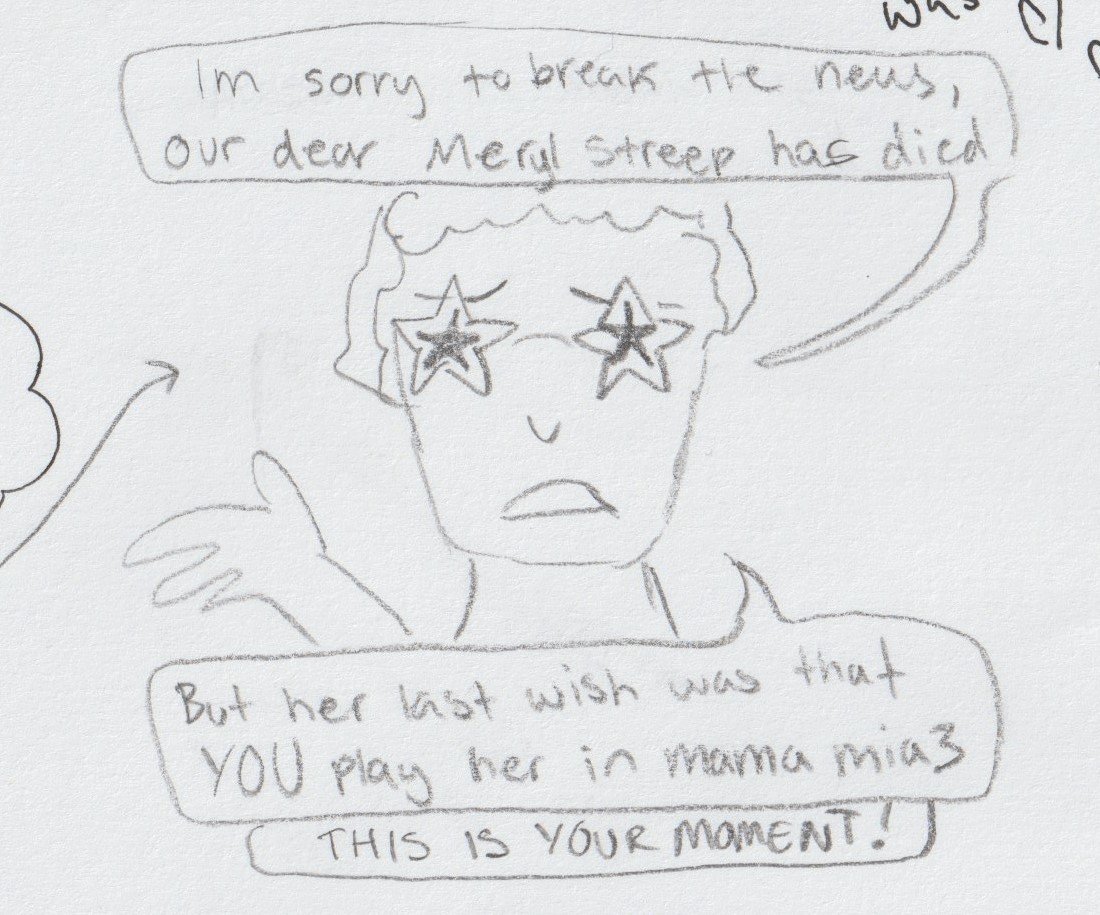 was
Im sorry to break the news,
our dear Meryl Streep has died
But her last wish was that
YOU play her in mama mia3
THIS IS YOUR MOMENT!